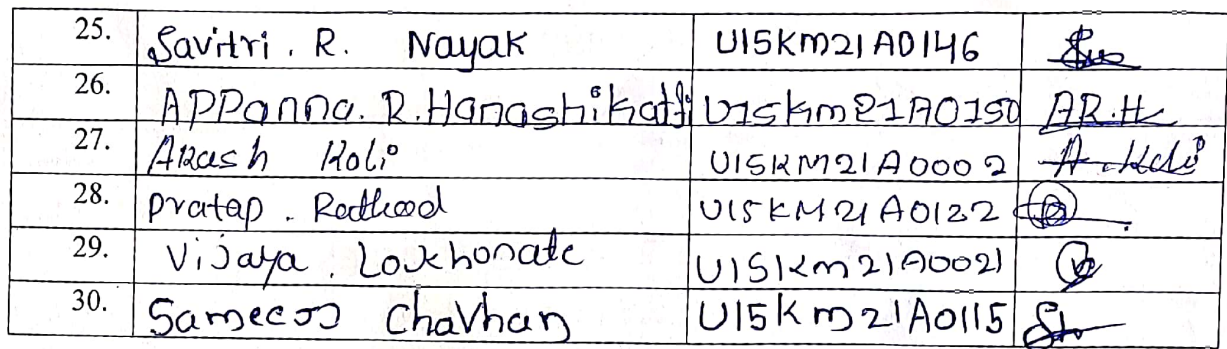 25. Savitri . R. Nayak U15KM21A0146
26. APPanna. R. Hanashikatti U15km21A0150 AR.H
27. Akash Koli U15KM21A0002 A. Koli
28. Pratap . Rathod U15KM21A0122
29. Vijaya . Lokhonate U15km21A0021
30. Sameer Chavhan U15Km21A0115